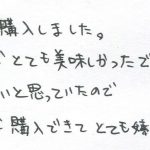 購入しました。
とても美味しかったで
いと思っていたので
購入できて とても嬉